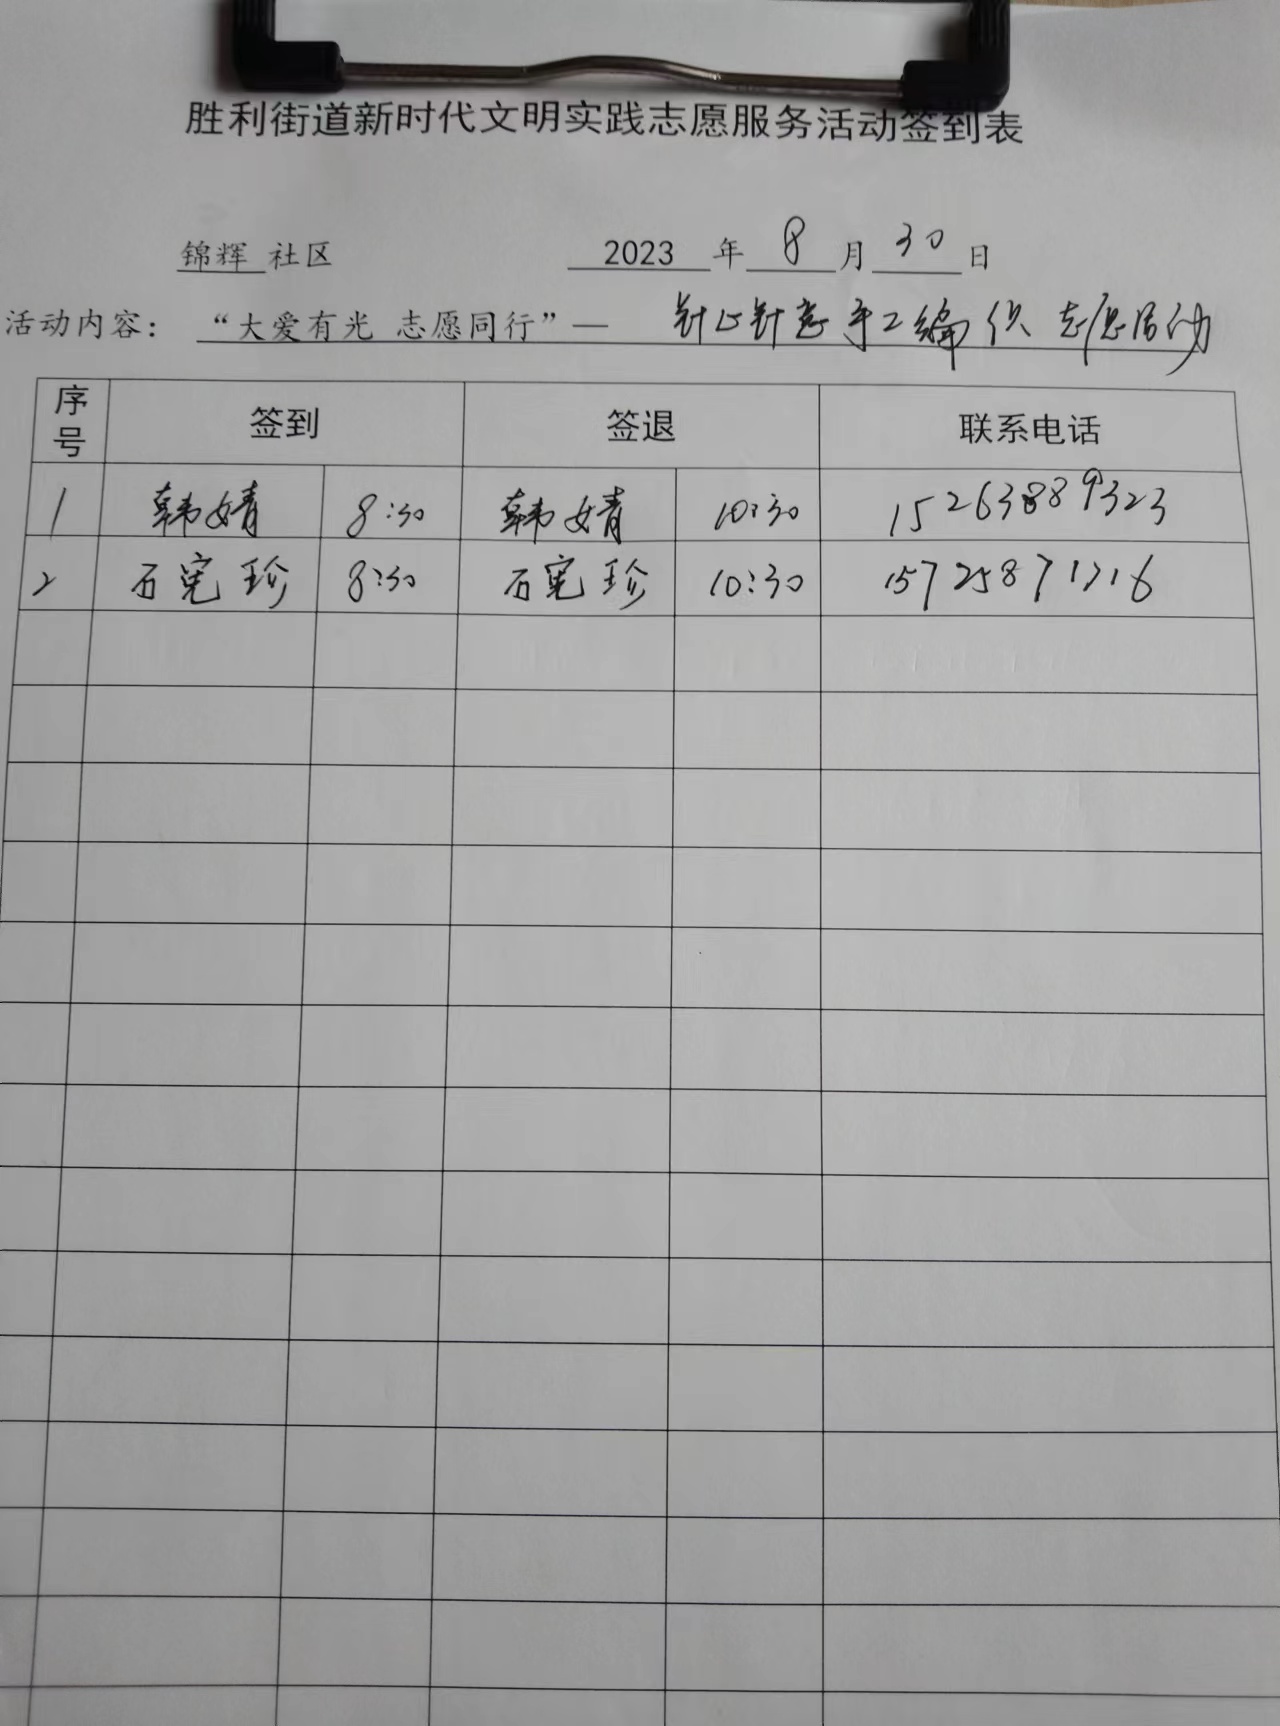 胜利街道新时代文明实践志愿服务活动签到表
锦辉 社区 2023 年 8 月 30 日
活动内容: “大爱有光 志愿同行”— 手工编织 志愿活动
序号 签到 签退 联系电话
1 韩婧 8:30 韩婧 10:30 15263889323
2 石宪珍 8:30 石宪珍 10:30 15725871716